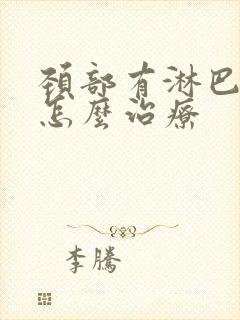 頚部有淋巴
怎麼治療
李騰